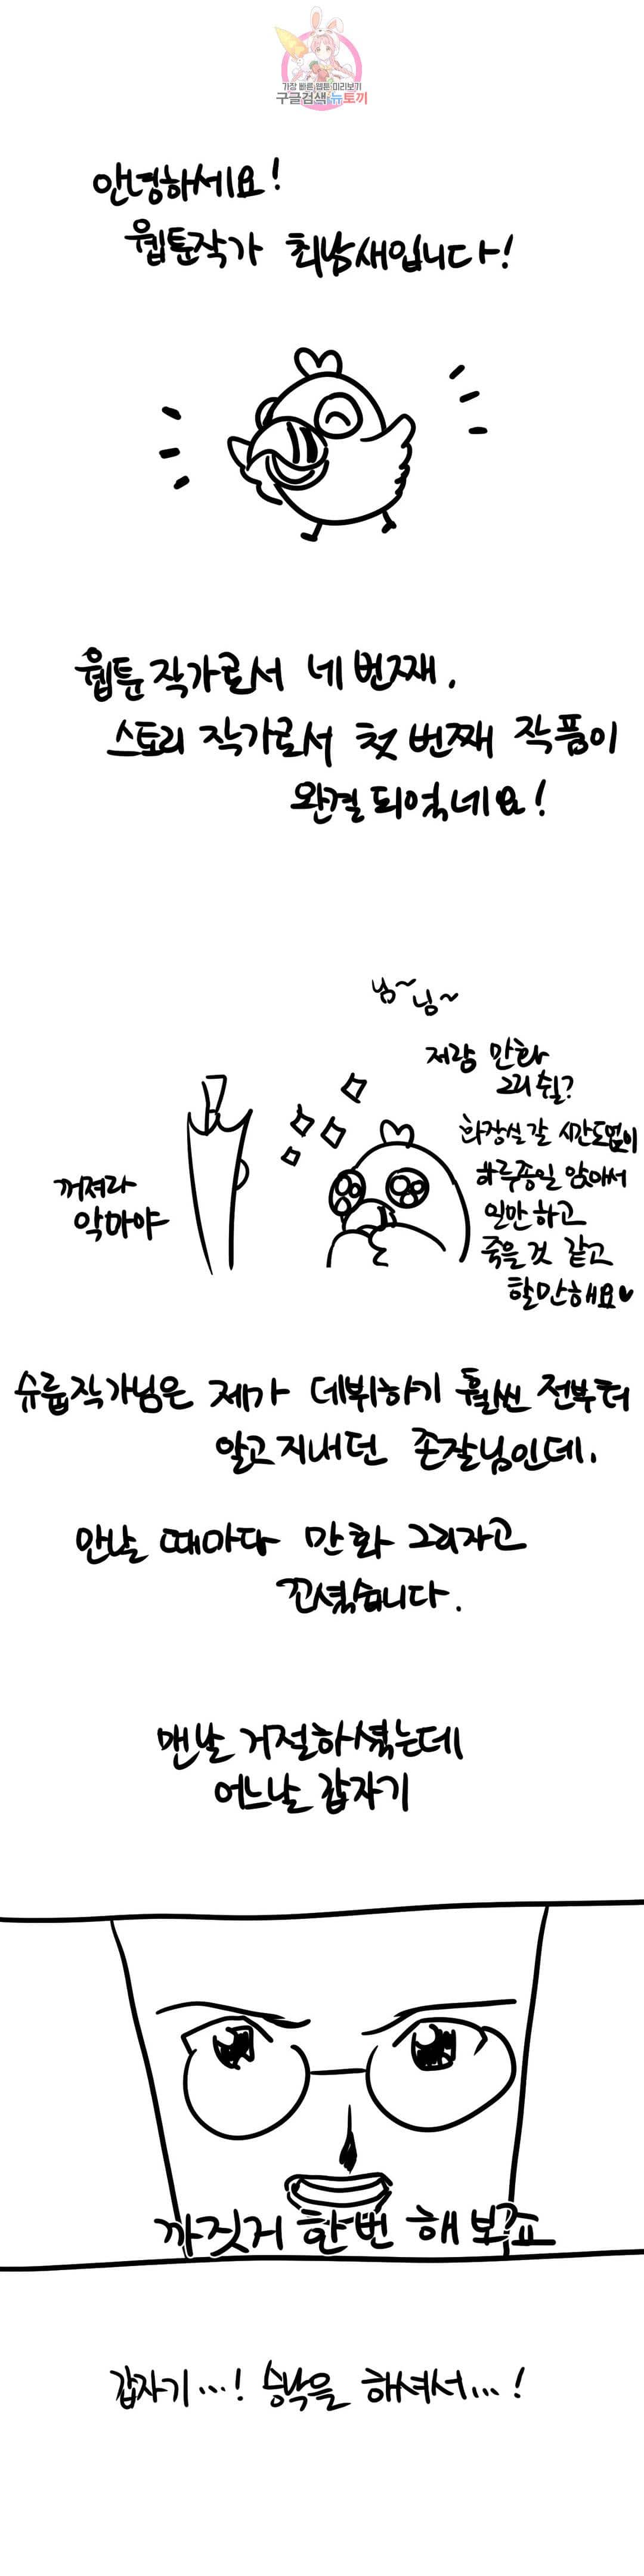 가장 빠른 웹툰 미리보기
구글검색 뉴토끼
안녕하세요!
웹툰작가 최남새입니다!
웹툰 작가로서 네 번째,
스토리 작가로서 첫 번째 작품이
완결 되었네요!
님~님~
저랑 만화
그리쉴?
화장실 갈 시간도 없이
하루종일 앉아서
일만 하고
죽을 것 같고
할만해요♥
꺼져라
악마야
슈룹작가님은 제가 데뷔하기 훨씬 전부터
알고 지내던 존잘님인데,
만날 때마다 만화 그리자고
꼬셨습니다.
맨날 거절하셨는데
어느날 갑자기
까짓거 한번 해보죠
갑자기...! 승낙을 하셔서...!